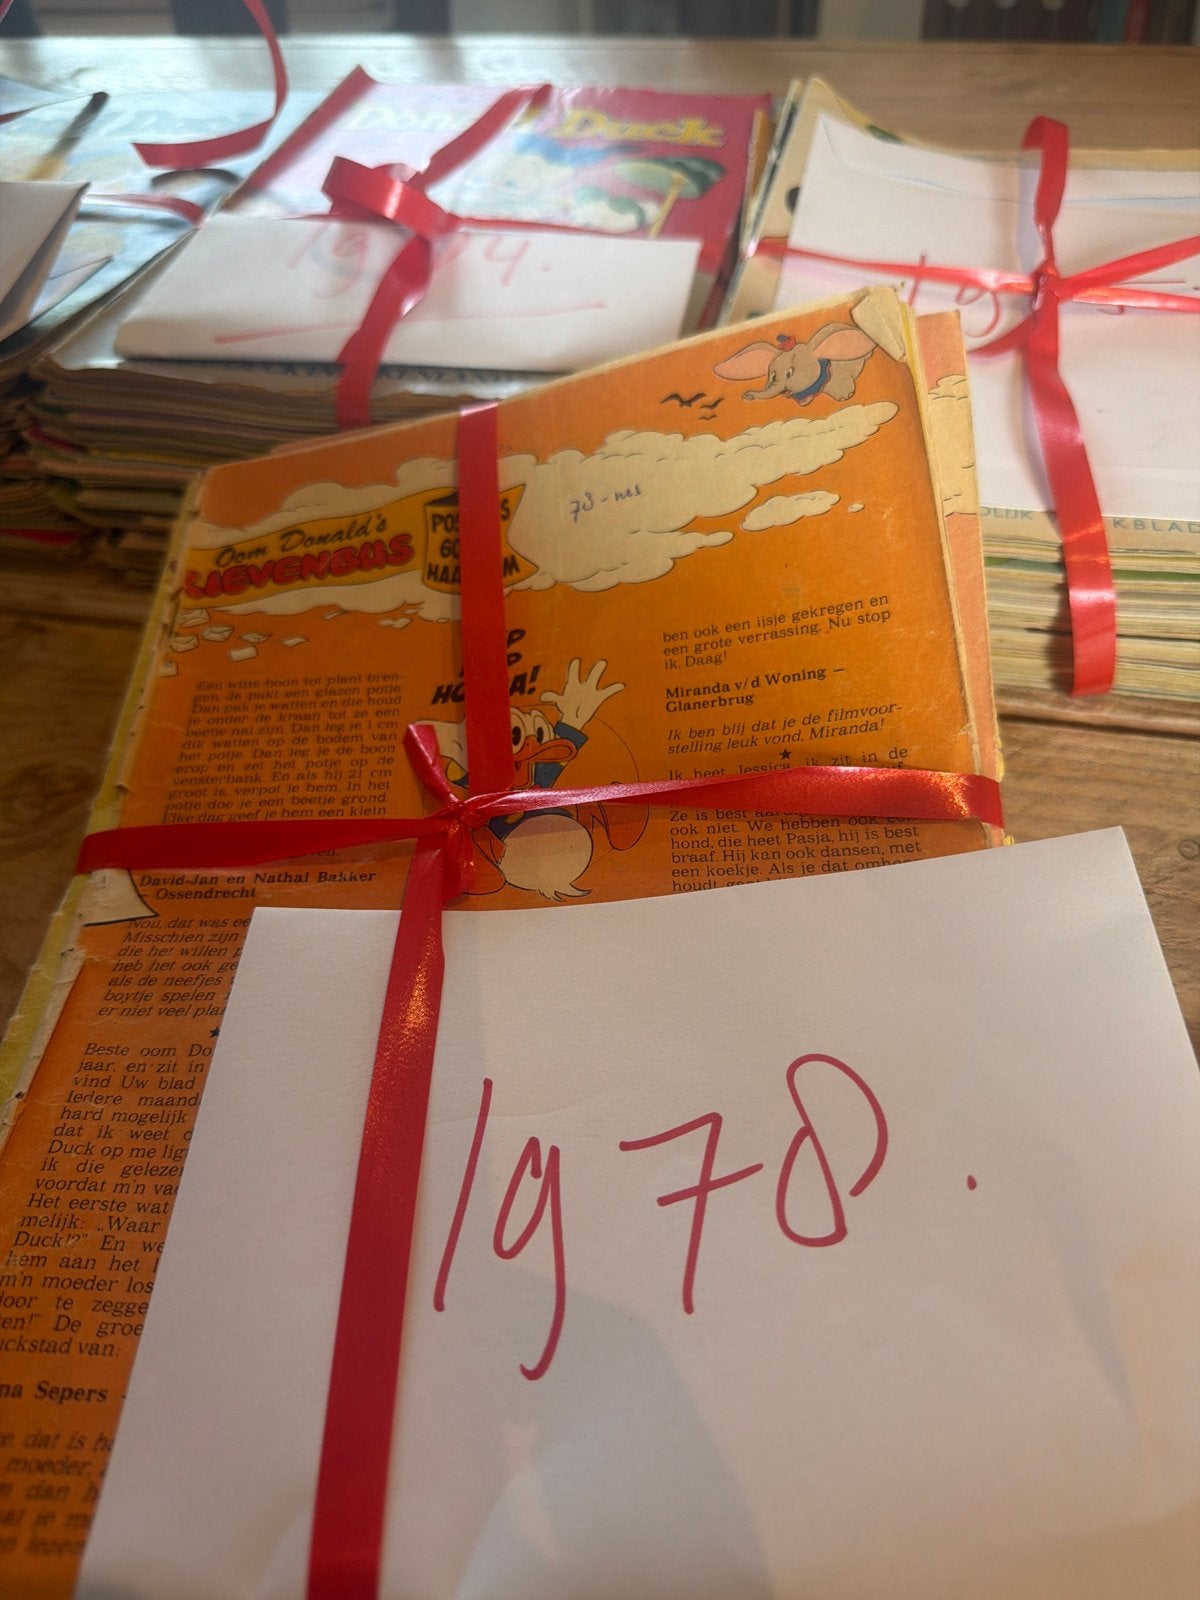 Donald Duck
19 4.
19
OLIJK KBLAD
78-
Oom Donald's
LIEVENBUS
HOERA!
Een witte boon tot plant bren-
gen. Je pakt een glazen potje
Dan pak je watten en die houd
je onder de kraan tot ze een
beetje nat zijn. Dan leg je 1 cm
dik watten op de bodem van
het potje. Dan leg je de boon
erop en zet het potje op de
vensterbank. En als hij 21 cm
groot is, verpot je hem. In het
potje doe je een beetje grond.
Elke dag geef je hem een klein
David-Jan en Nathal Bakker
– Ossendrecht
Nou, dat was ee
Misschien zijn
die het willen p
heb het ook ge
als de neefjes
boytje spelen
er niet veel pla
★
Beste oom Do
jaar, en zit in
vind Uw blad
Iedere maand
hard mogelijk
dat ik weet d
Duck op me lig
ik die geleze
voordat m'n va
Het eerste wat
melijk: „Waar
Duck!?" En we
hem aan het
m'n moeder los
door te zegge
ten!" De groe
uckstad van:
na Sepers -
e, dat is ha
moeder,
dan h
ben ook een ijsje gekregen en
een grote verrassing. Nu stop
ik. Daag!
Miranda v/d Woning –
Glanerbrug
Ik ben blij dat je de filmvoor-
stelling leuk vond, Miranda!
★
Ik heet Jessica, ik zit in de
Ze is best
ook niet. We hebben ook een
hond, die heet Pasja, hij is best
braaf. Hij kan ook dansen, met
een koekje. Als je dat omhoog
houdt gaat
1978.